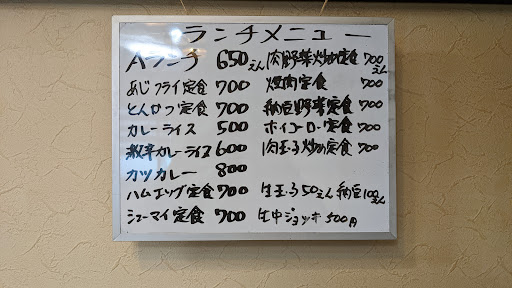 ランチメニュー
Aランチ 650えん 肉野菜炒め定食 700えん
あじフライ定食 700 焼肉定食 700
とんかつ定食 700 納豆野菜定食 700
カレーライス 500 ホイコーロー定食 700
激辛カレーライス 600 肉玉子炒め定食 700
カツカレー 800
ハムエッグ定食 700 生玉子50えん 納豆100えん
シューマイ定食 700 生中ジョッキ 500円